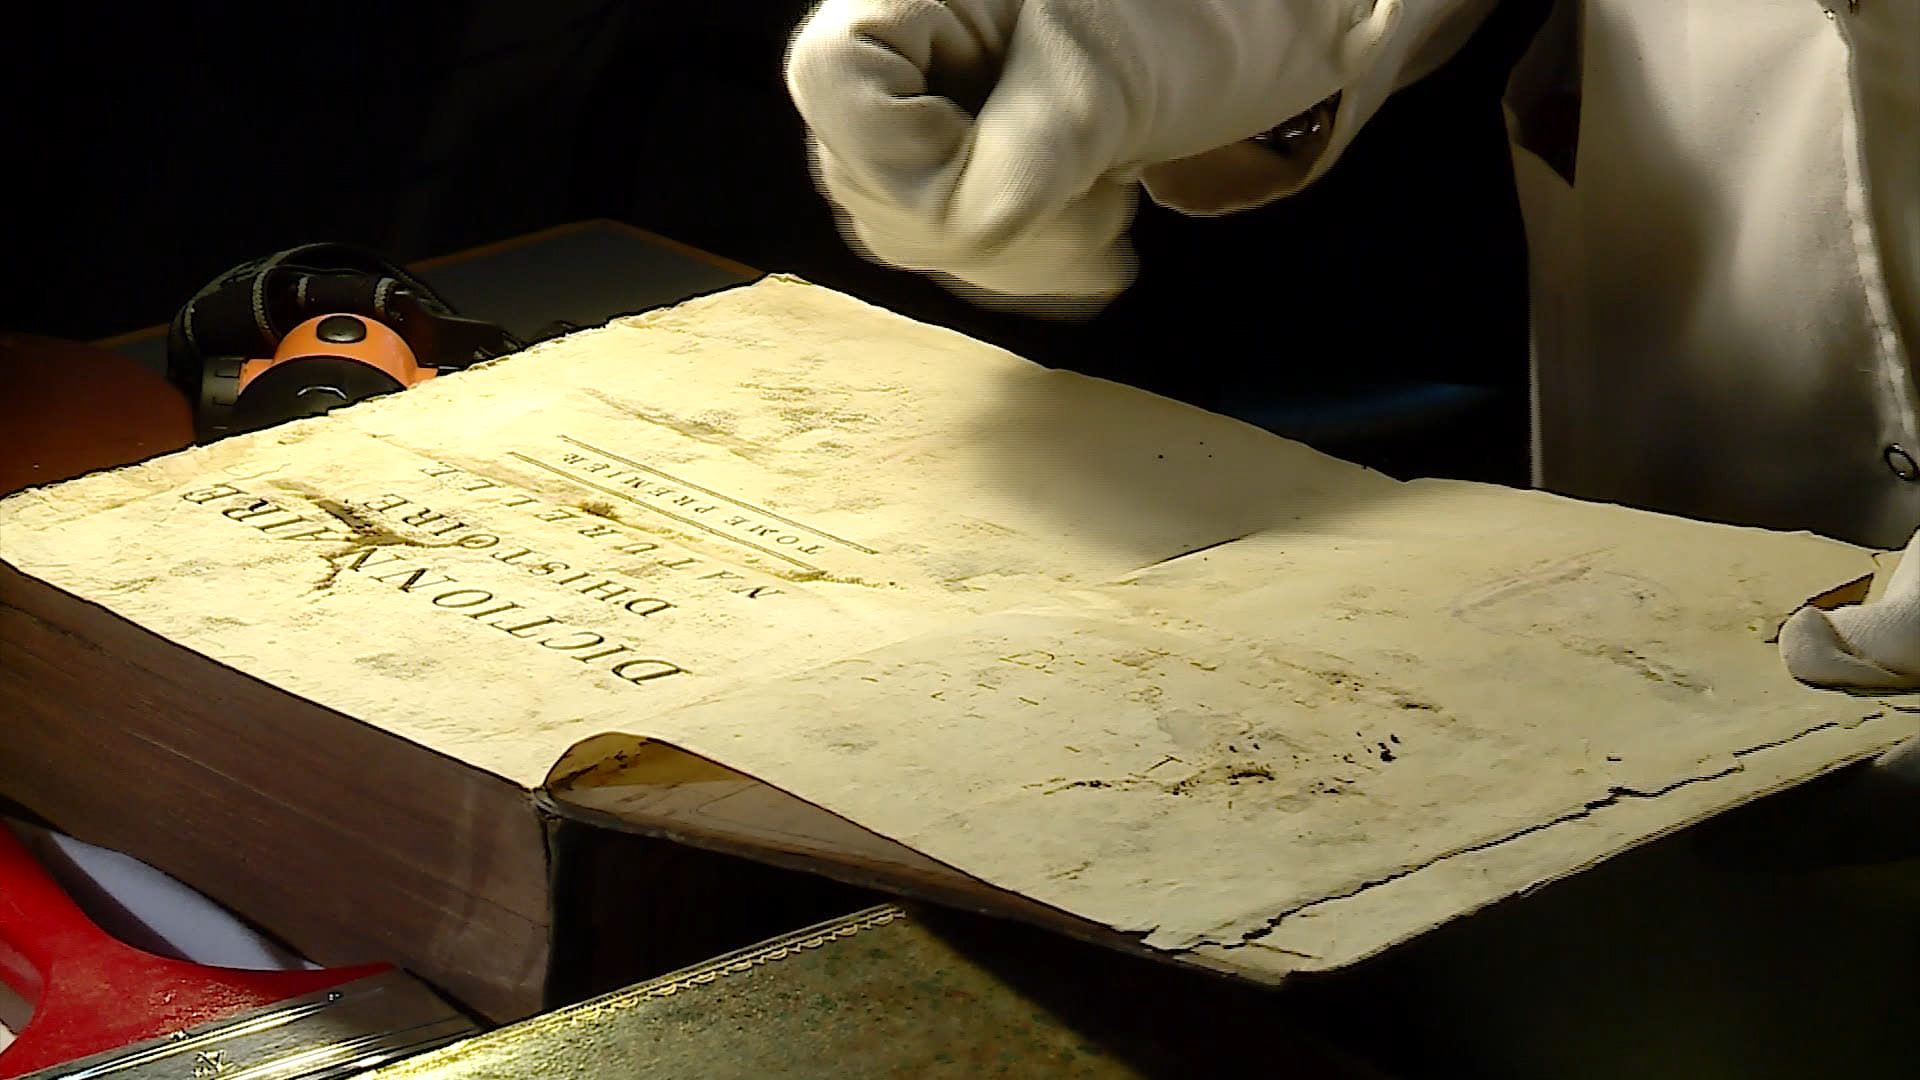 DICTIONNAIRE
DHISTOIRE
NATURELLE
TOME PREMIER